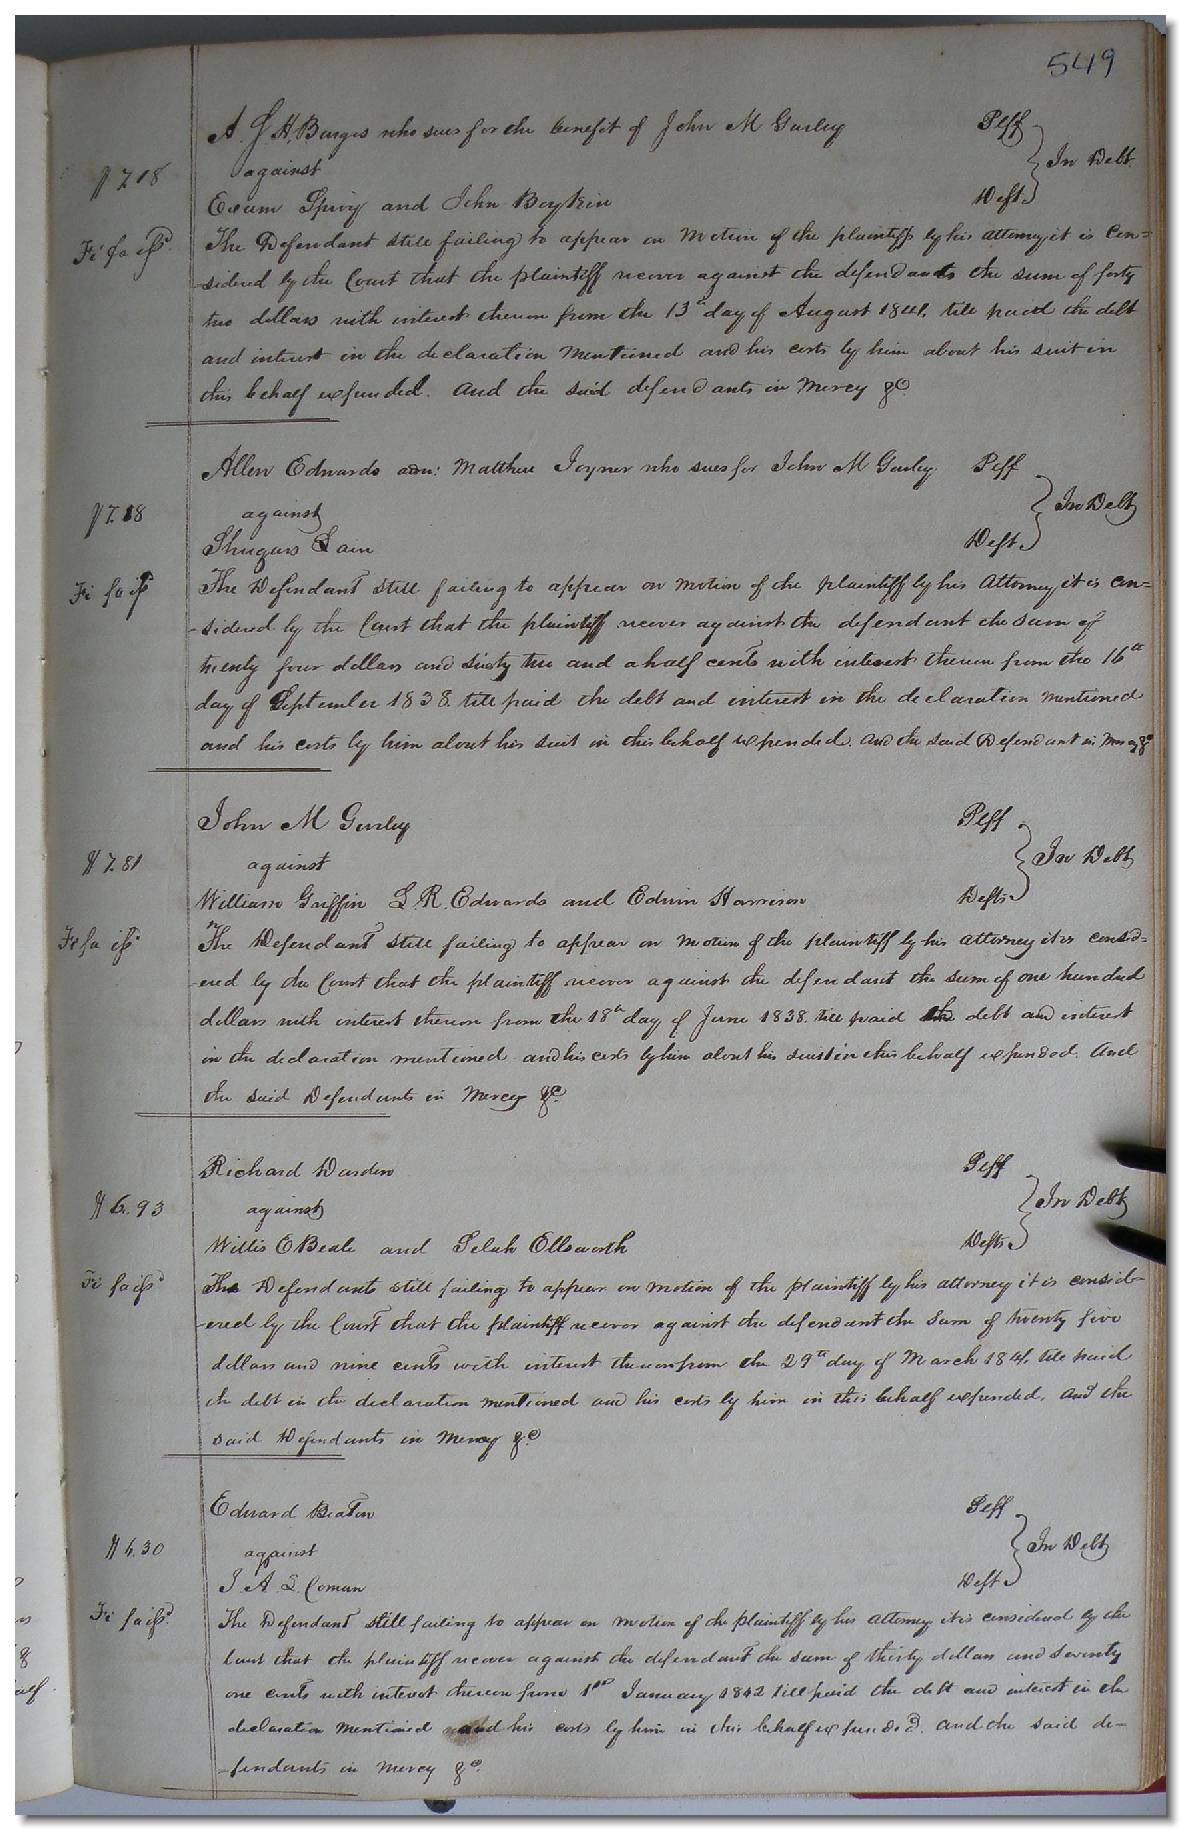 549
A. J. H. Burges who sues for the benefit of John M Gurley Plff
against In Debt
$ 7.18
Exum Spivy and John Boykin Deft.
Fi fa issd
The Defendant still failing to appear on Motion of the plaintiff by his attorney it is con=
-sidered by the Court that the plaintiff recover against the defendants the sum of forty
two dollars with interest thereon from the 13th day of August 1841. till paid the debt
and interest in the declaration mentioned and his costs by him about his suit in
this behalf expended. And the said defendants in Mercy &c
Allen Edwards adm: Matthew Joyner who sues for John M Gurley Plff
$ 7.18
against In Debt
Shugars Lain Deft.
Fi fa iss
The Defendant still failing to appear on motion of the plaintiff by his Attorney it is con=
-sidered by the Court that the plaintiff recover against the defendant the sum of
twenty four dollars and sixty two and a half cents with interest thereon from the 16th
day of September 1838. till paid the debt and interest in the declaration mentioned
and his costs by him about his suit in this behalf expended. And the said Defendant in Mercy &c
John M Gurley Plff
$ 7.81
against In Debt
William Griffin L. R. Edwards and Edwin Harrison Defts.
Fi fa issd
The Defendant still failing to appear on motion of the plaintiff by his attorney it is consid=
-ered by the Court that the plaintiff recover against the defendant the sum of one hundred
dollars with interest thereon from the 18th day of June 1838. till paid the debt and interest
in the declaration mentioned and his costs by him about his suit in this behalf expended. And
the said Defendants in Mercy &c
Richard Darden Plff
$ 6.93
against In Debt
Willis E Beale and Selah Ellsworth Defts.
Fi fa issd
The Defendants still failing to appear on motion of the plaintiff by his attorney it is consid-
-ered by the Court that the plaintiff recover against the defendant the sum of twenty five
dollars and nine cents with interest thereon from the 29th day of March 1841. till paid
the debt in the declaration mentioned and his costs by him in this behalf expended. And the
said Defendants in Mercy &c
Edward Beaton Plff
$ 6.30
against In Debt
J A L. Coman Deft.
Fi fa issd
The Defendant still failing to appear on motion of the plaintiff by his attorney it is considered by the
Court that the plaintiff recover against the defendant the sum of thirty dollars and seventy
one cents with interest thereon from 1st January 1842 till paid the debt and interest in the
declaration mentioned and his costs by him in this behalf expended. And the said de-
-fendants in mercy &c.